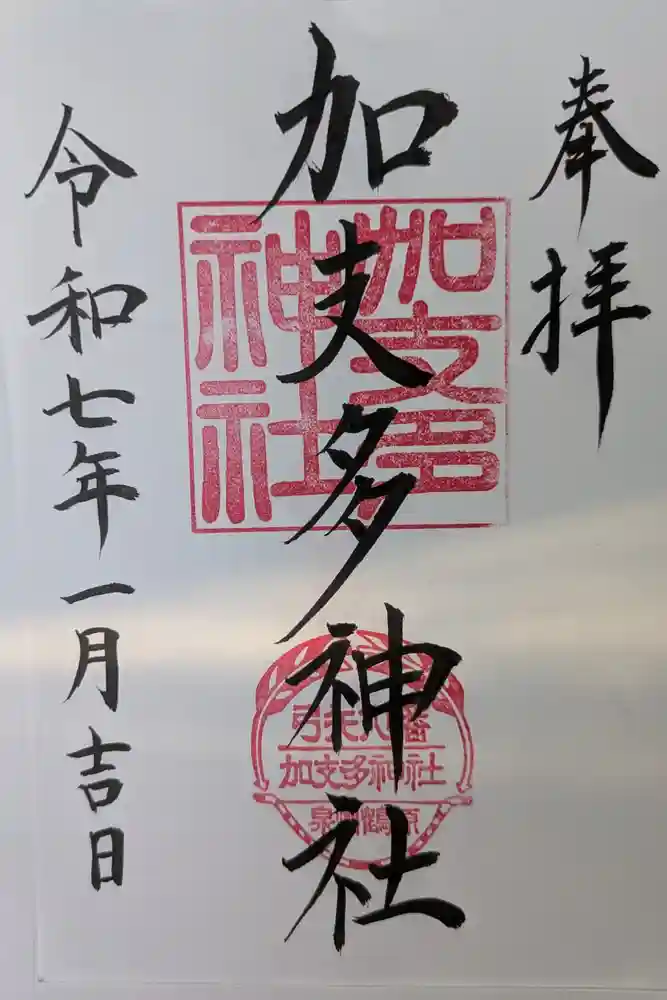 奉拝
加支多神社
令和七年一月吉日
加支多
神社
弓矢八幡
加支多神社
泉州鶴原